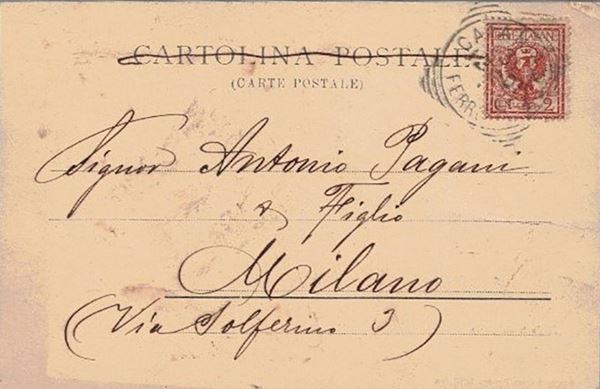 CARTOLINA POSTALE
(CARTE POSTALE)
Signor Antonio Pagani
& Figlio
Milano
(Via Solferino 3)
FERR
2